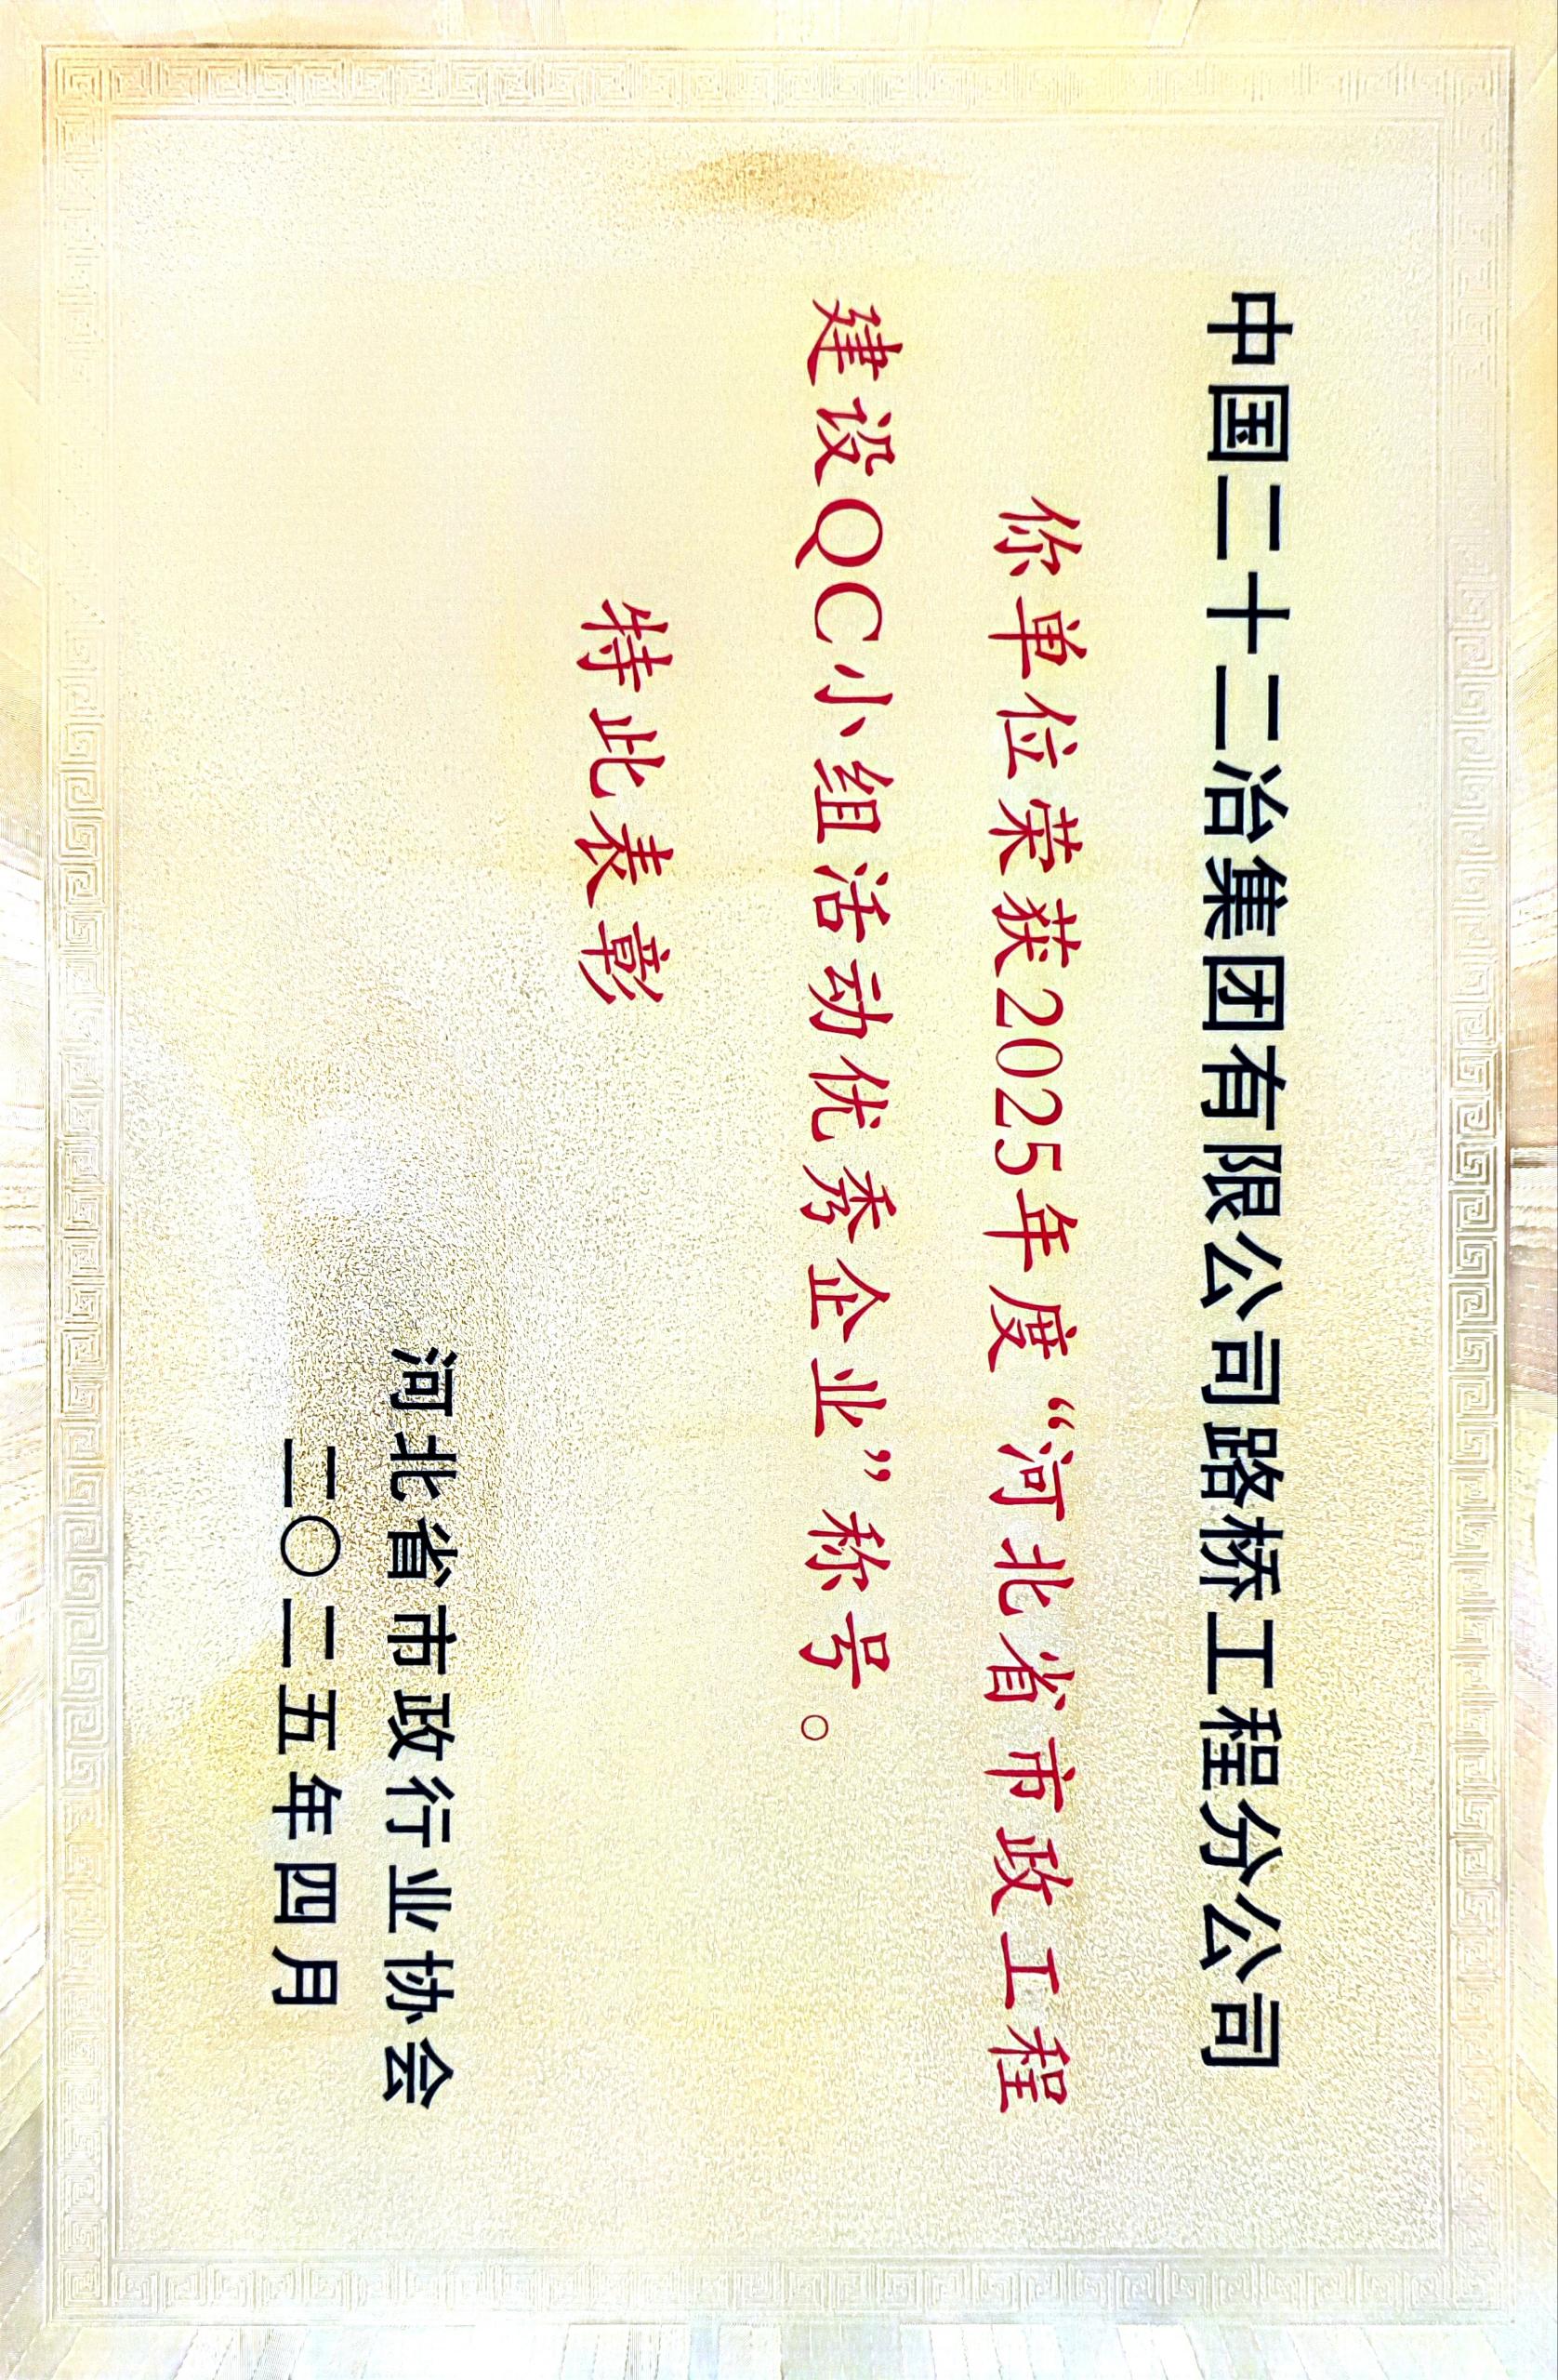 中国二十二冶集团有限公司路桥工程分公司
你单位荣获2025年度“河北省市政工程
建设QC小组活动优秀企业”称号。
特此表彰
河北省市政行业协会
二〇二五年四月